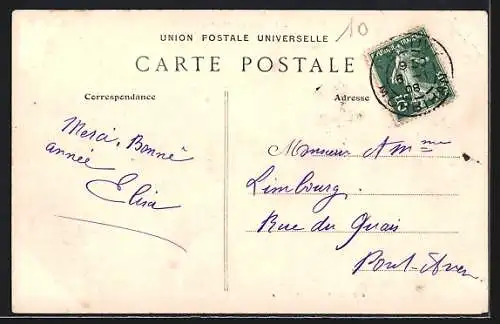 10
UNION POSTALE UNIVERSELLE
CARTE POSTALE
Correspondance
Adresse
Merci, Bonne
année
Elisa
Monsieur & Mme
Limbourg
Rue du Quai
Pont-Aven